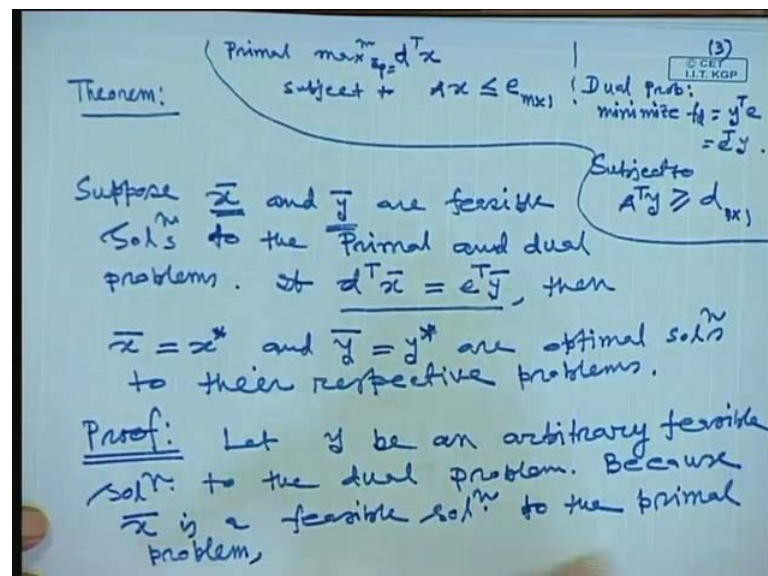 Primal maxᵐ z_p = dᵀx
subject to Ax ≤ e_{m×1}
(3)
© CET
I.I.T. KGP
Dual Prob:
minimize f_d = yᵀe
= eᵀy.
Subject to
Aᵀy ≥ d_{n×1}
Theorem:
Suppose x̄ and ȳ are feasible
Solⁿs to the Primal and dual
problems. If dᵀx̄ = eᵀȳ, then
x̄ = x* and ȳ = y* are optimal solⁿs
to their respective problems.
Proof: Let y be an arbitrary feasible
solⁿ. to the dual problem. Because
x̄ is a feasible solⁿ. to the primal
problem,